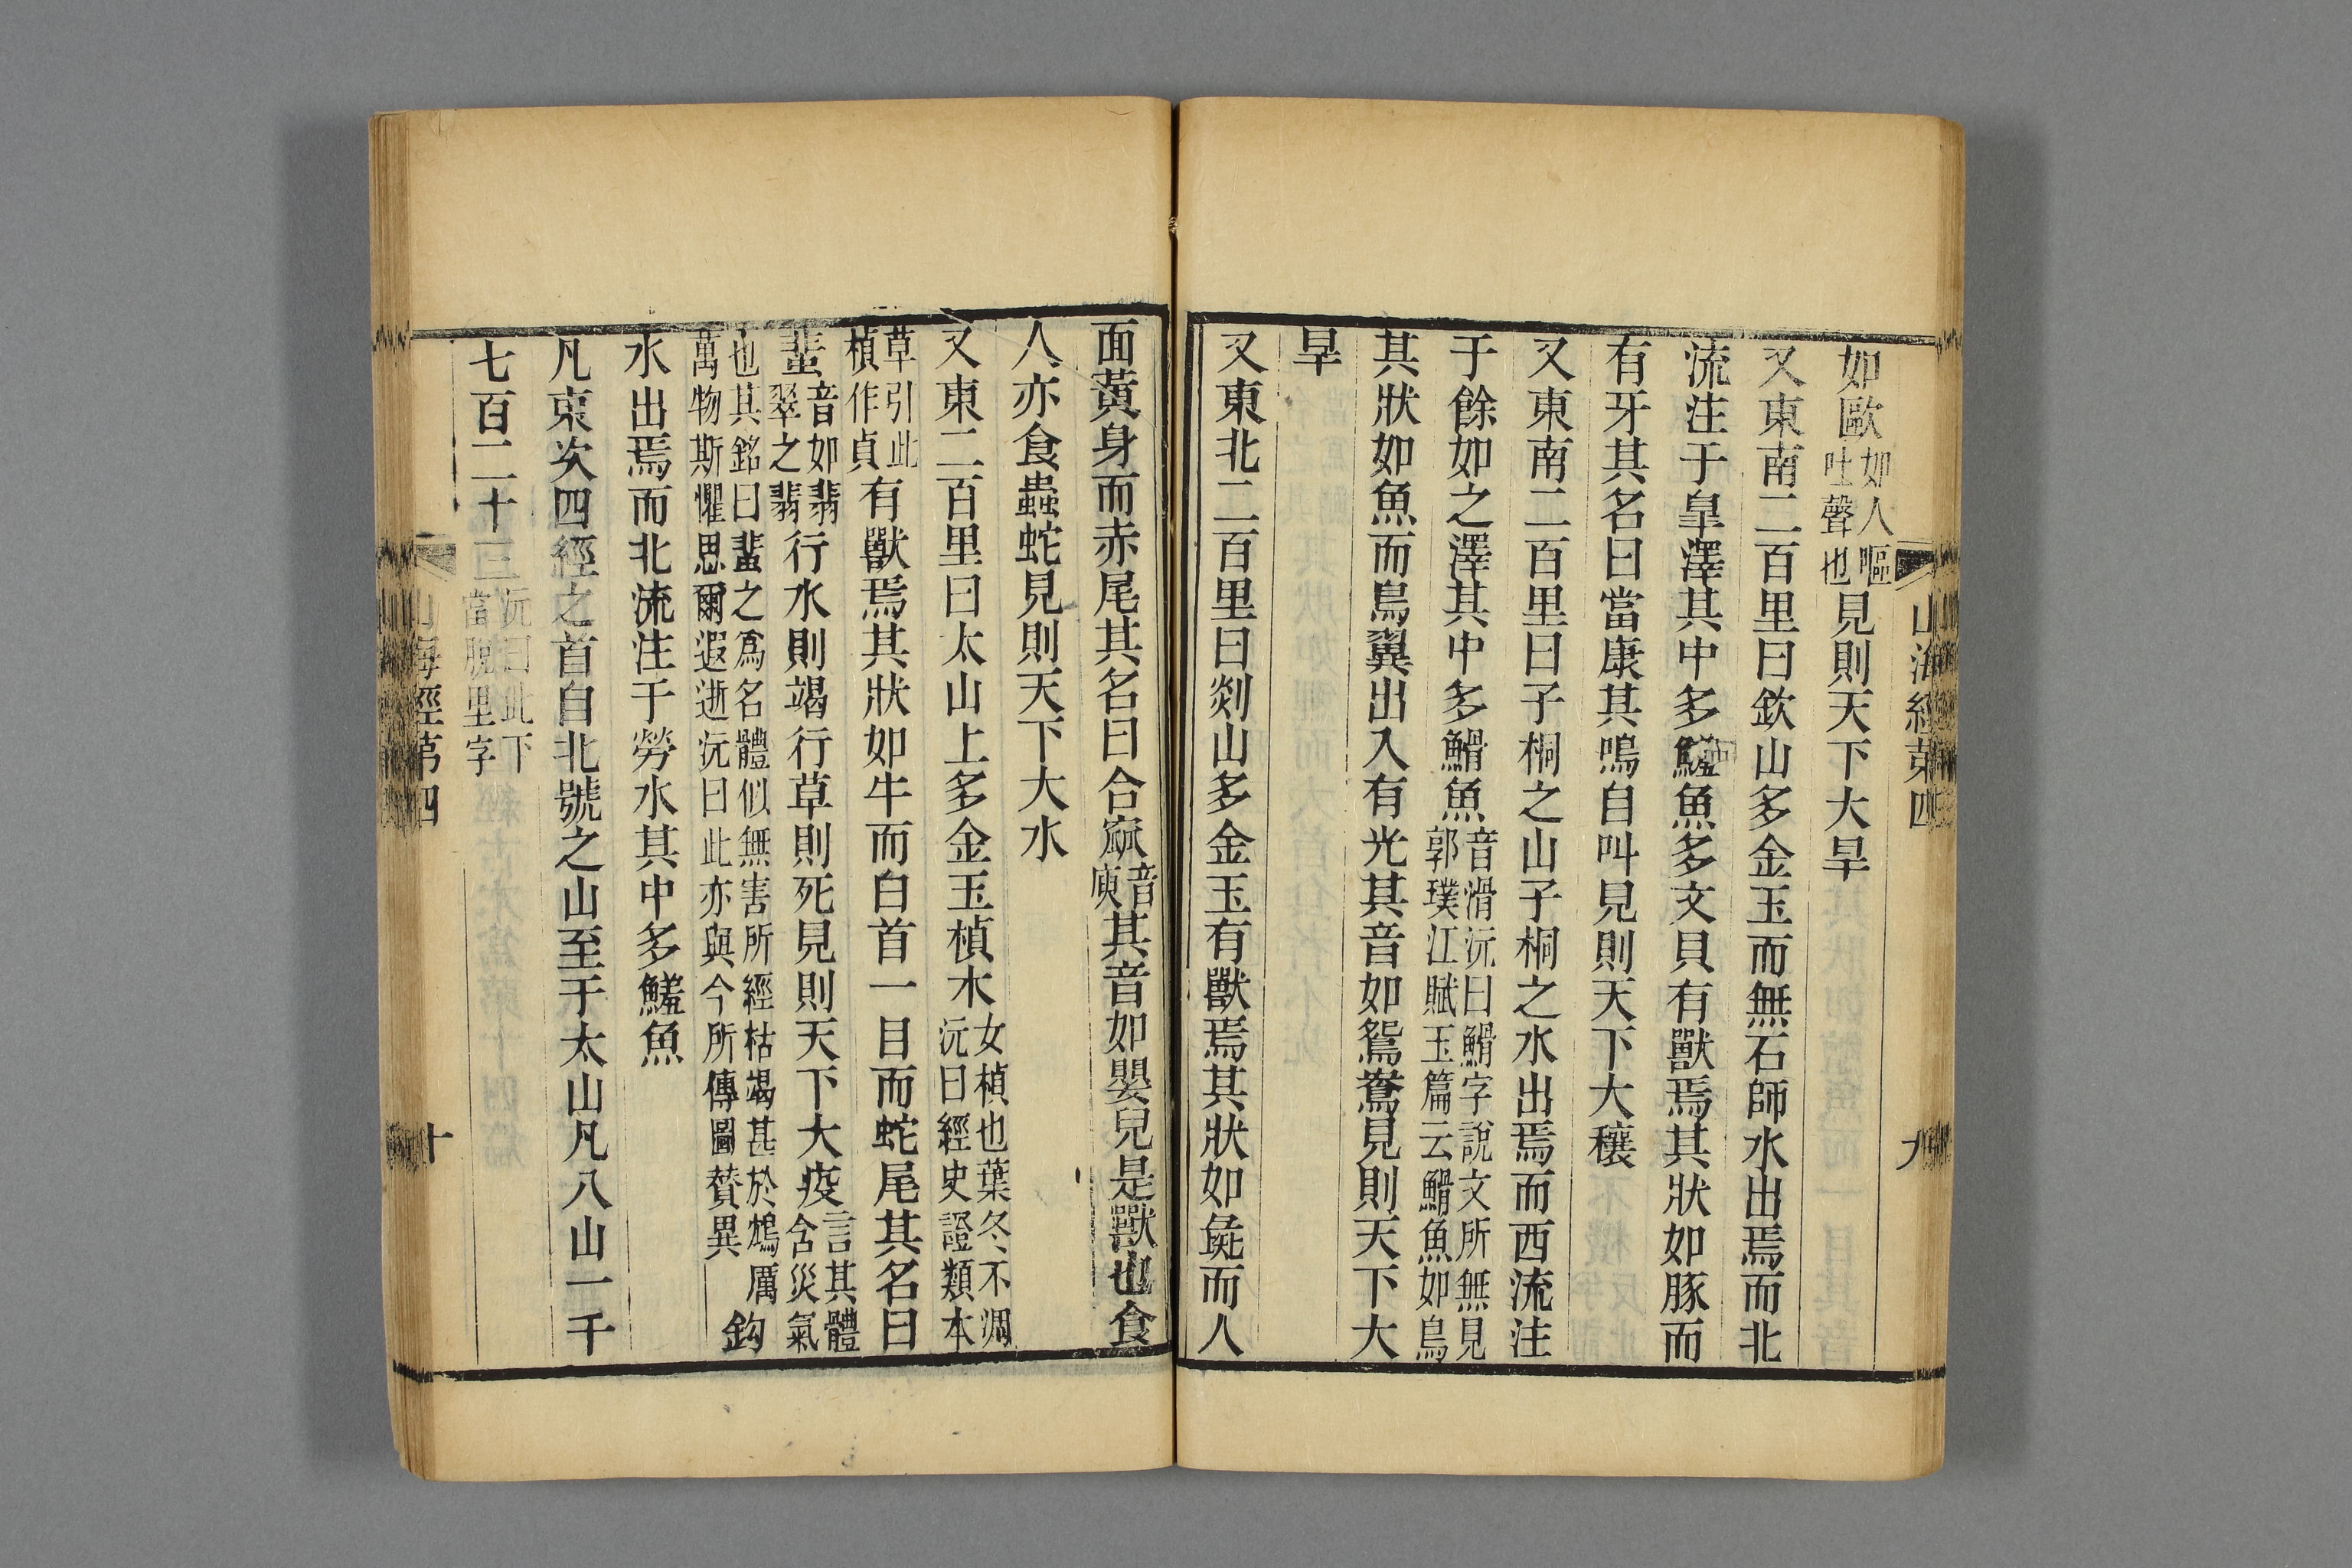 山海經苐四
九
如歐如人嘔吐聲也見則天下大旱
又東南二百里曰欽山多金玉而無石師水出焉而北
流注于皐澤其中多鱃魚多文貝有獸焉其狀如豚而
有牙其名曰當康其鳴自叫見則天下大穰
又東南二百里曰子桐之山子桐之水出焉而西流注
于餘如之澤其中多䱻魚音滑沅曰䱻字說文所無見郭璞江賦玉篇云䱻魚如鳥
其狀如魚而鳥翼出入有光其音如鴛鴦見則天下大
旱
又東北二百里曰剡山多金玉有獸焉其狀如彘而人
面黃身而赤尾其名曰合窳音庾其音如嬰兒是獸也食
人亦食蟲蛇見則天下大水
又東二百里曰太山上多金玉楨木女楨也葉冬不凋沅曰經史證類本
草引此楨作貞有獸焉其狀如牛而白首一目而蛇尾其名曰
蜚音如翡翠之翡行水則竭行草則死見則天下大疫言其體含災氣
也其銘曰蜚之爲名體似無害所經枯竭甚於鴆厲萬物斯懼思爾遐逝沅曰此亦與今所傳圖贊異鈎
水出焉而北流注于勞水其中多鱃魚
凡東次四經之首自北號之山至于太山凡八山一千
七百二十沅曰此下當脫里字
山海經苐四
十